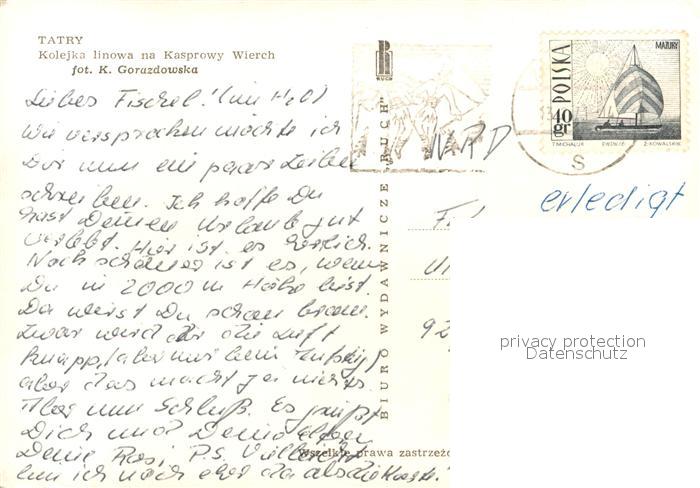 TATRY
Kolejka linowa na Kasprowy Wierch
fot. K. Gorazdowska
Liebes Fischel! (im H2O)
Wie versprochen möchte ich
Dir nun ein paar Zeilen
schreiben. Ich hoffe Du
hast Deinen Urlaub gut
verlebt. Hier ist es herrlich.
Noch schöner ist es, wenn
Du in 2000 m Höhe bist.
Da wirst Du schon braun.
Zwar wird dir die Luft
knapp, (aber nur beim
aber das macht ja nichts.
Aber nun Schluß. Es grüßt
Dich und Deine Eltern
Deine Rosi. P.S. Vielleicht
bin ich noch eher da als die Karte.
BIURO WYDAWNICZE „RUCH"
Wszelkie prawa zastrzeżo
RUCH
NRD
POLSKA
MAZURY
40 gr
T.MICHALUK PWPW.65 Z.KOWALSKI
S
erledigt
92
privacy protection
Datenschutz